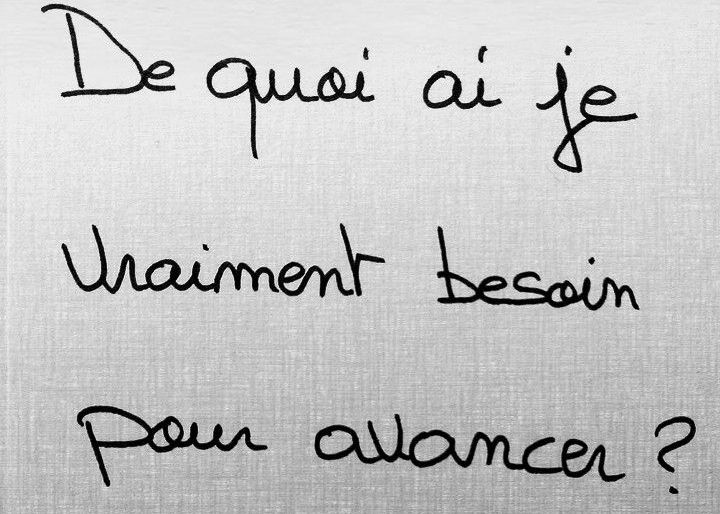 De quoi ai je
vraiment besoin
pour avancer ?